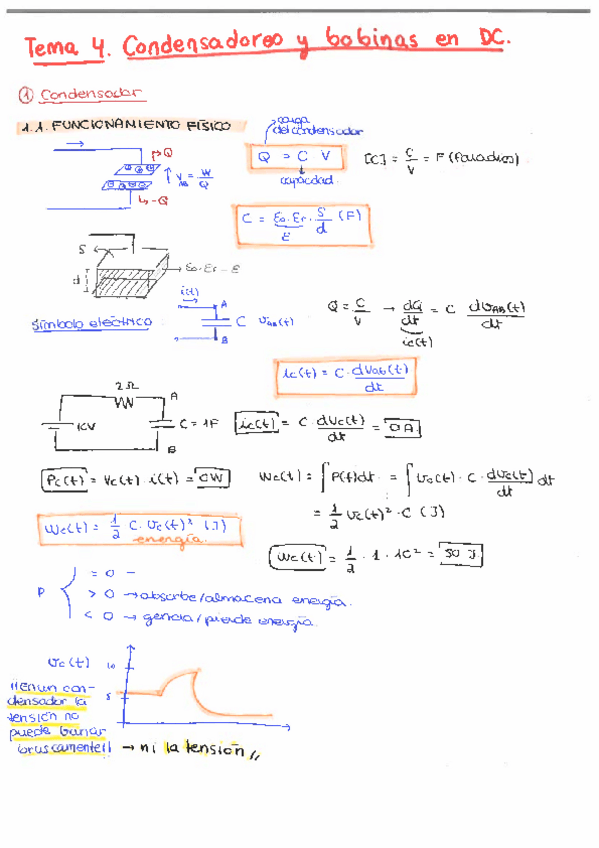 Tema 4. Condensadores y bobinas en DC.
① Condensador
1.1. FUNCIONAMIENTO FÍSICO
carga del condensador
Q = C V
capacidad
[C] = C/V = F (faradios)
+Q
V_AB = W/Q
-Q
C = εo.εr. S/d (F)
ε
S
d
εo.εr = ε
símbolo eléctrico
i(t)
A
C
B
v_AB(t)
Q = C/V → dQ/dt = C dv_AB(t)/dt
ic(t)
ic(t) = C. dv_AB(t)/dt
2Ω
A
10V
C = 1F
B
ic(t) = C. dvc(t)/dt = 0A
Pc(t) = vc(t). i(t) = 0W
Wc(t) = ∫ P(t)dt = ∫ vc(t). C. dvc(t)/dt dt
= 1/2 vc(t)². C (J)
Wc(t) = 1/2 C. vc(t)² (J)
energía
Wc(t) = 1/2 . 1 . 10² = 50 J
P
= 0 -
> 0 → absorbe/almacena energía.
< 0 → genera/pierde energía.
vc(t)
10
5
!!En un con-
densador la
tensión no
puede
bruscamente!! → ni la tensión,,